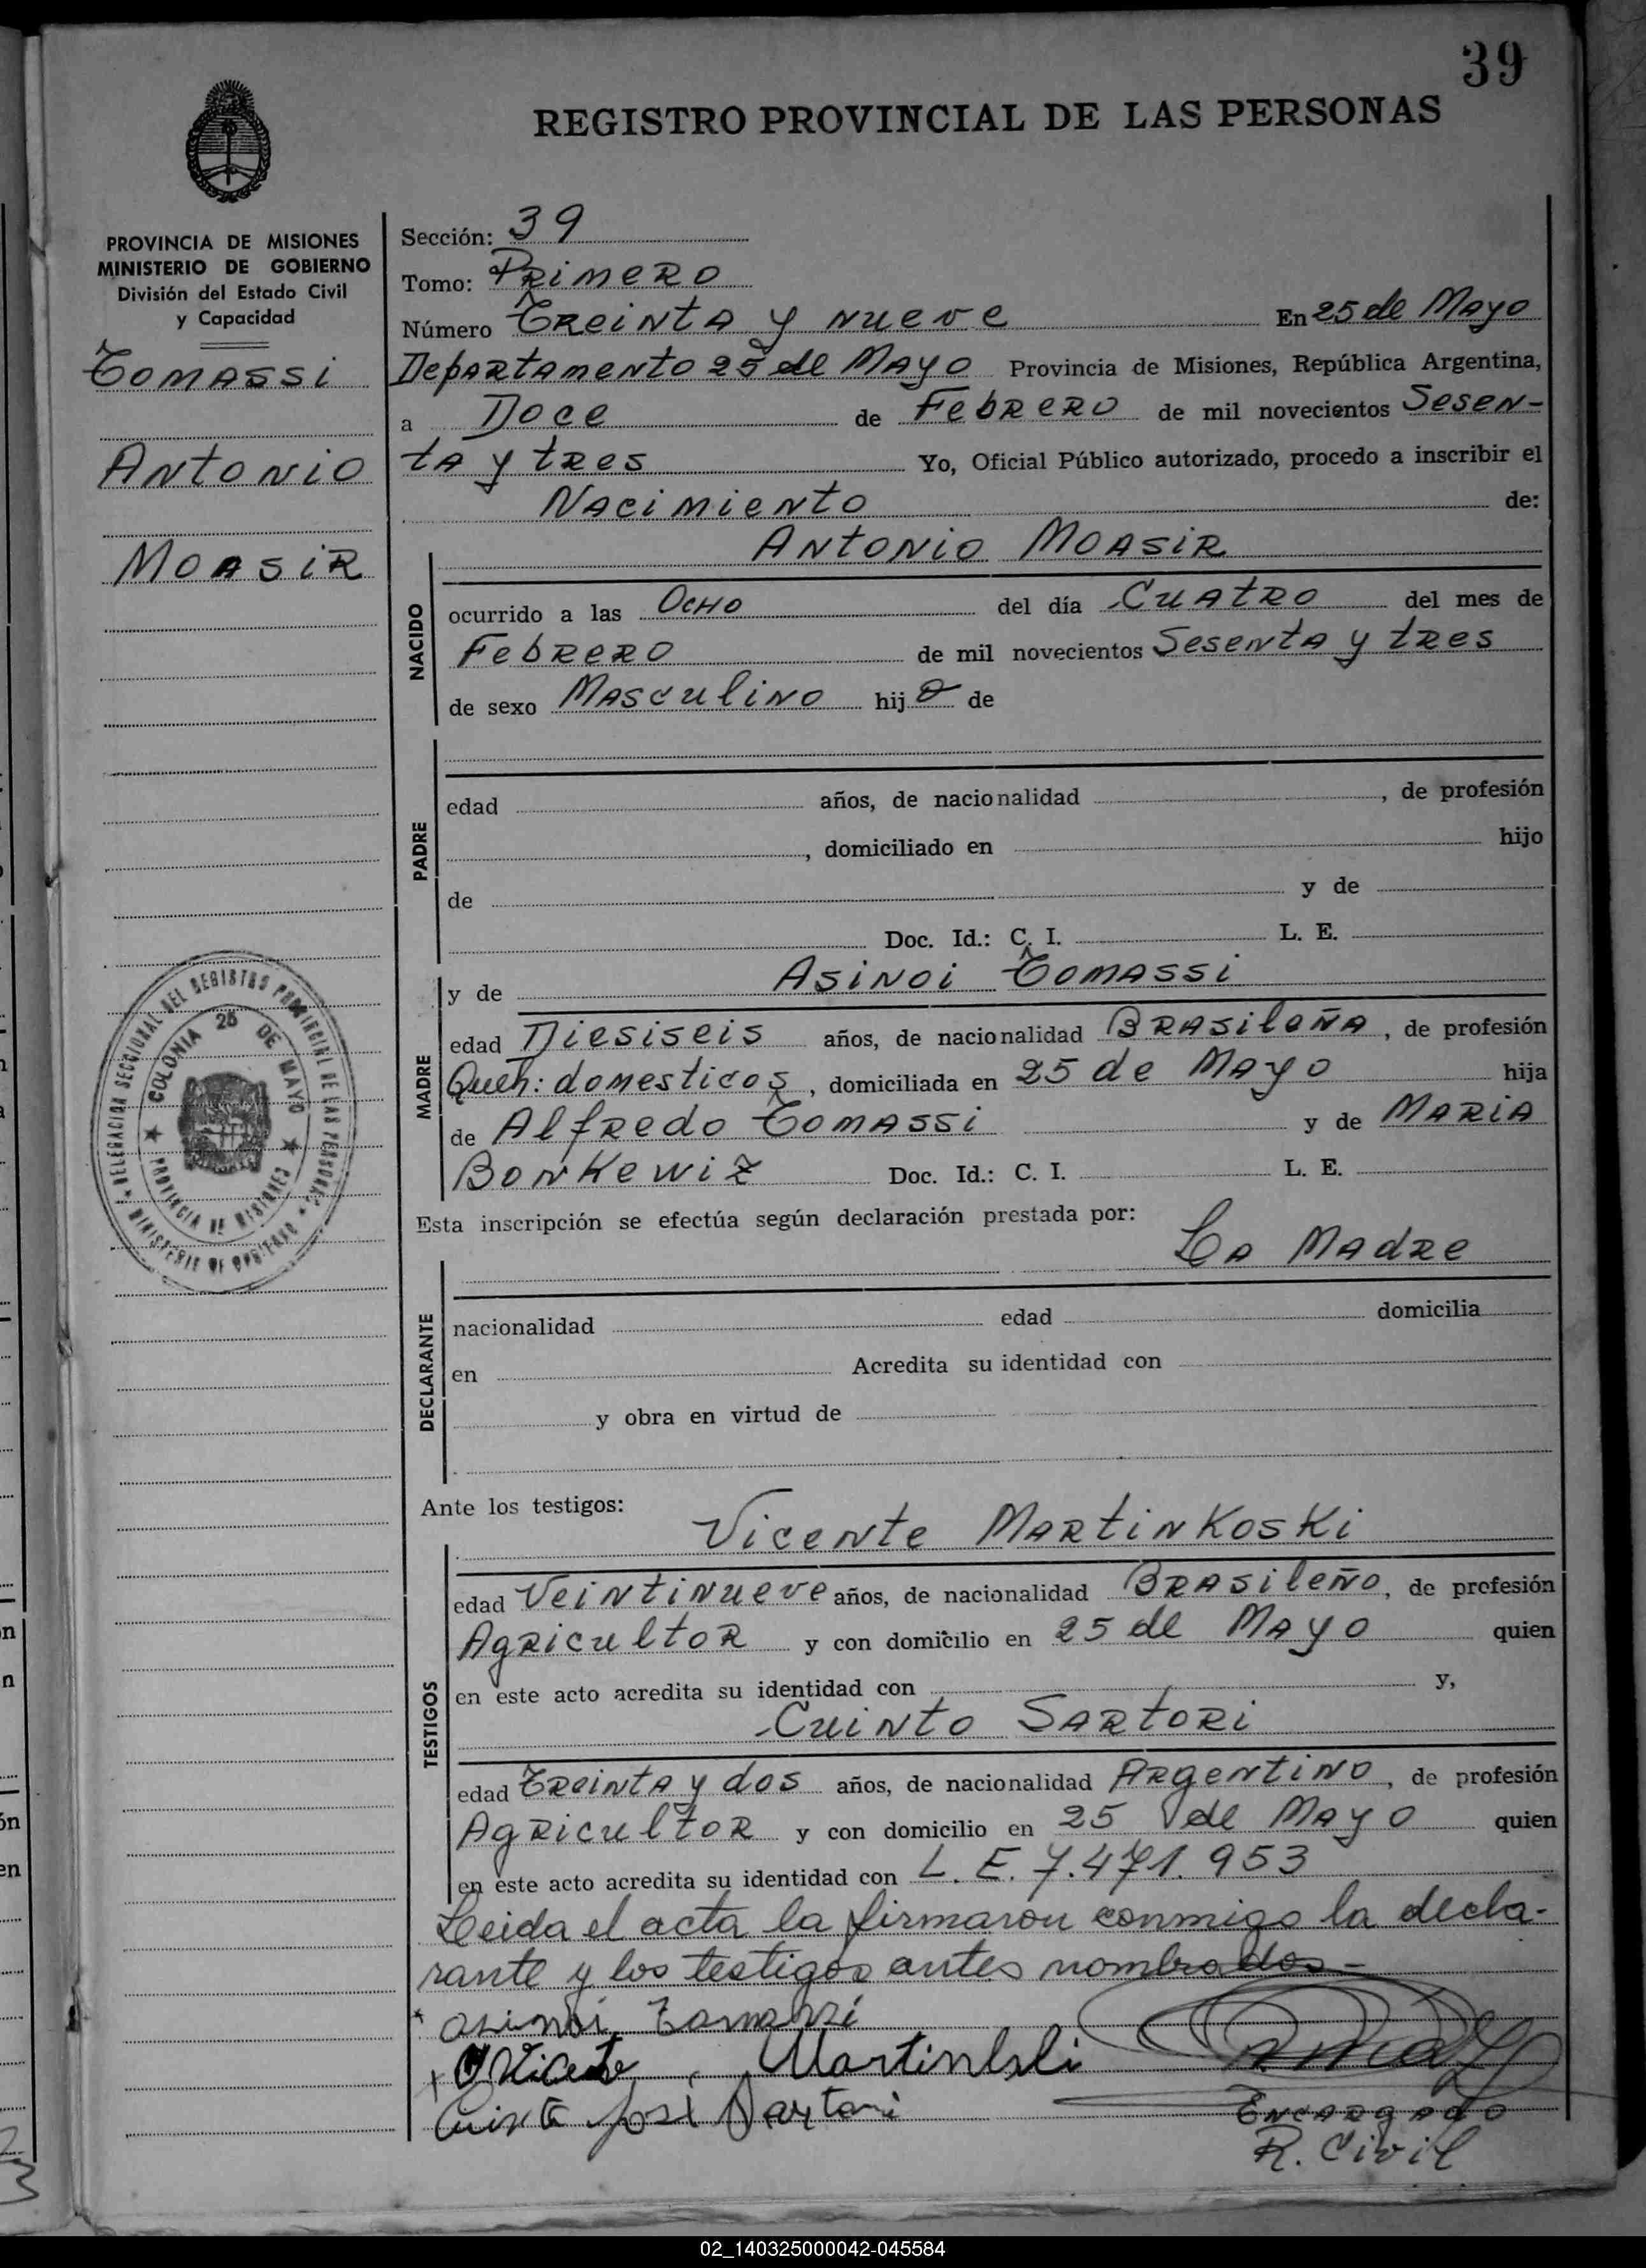 39
REGISTRO PROVINCIAL DE LAS PERSONAS
PROVINCIA DE MISIONES
MINISTERIO DE GOBIERNO
División del Estado Civil
y Capacidad
Tomassi
Antonio
Moasir
DELEGACION SECCIONAL DEL REGISTRO PROVINCIAL DE LAS PERSONAS
MINISTERIO DE GOBIERNO
COLONIA 25 DE MAYO
PROVINCIA DE MISIONES
Sección: 39
Tomo: Primero
Número Treinta y nueve En 25 de Mayo
Departamento 25 de Mayo Provincia de Misiones, República Argentina,
a Doce de Febrero de mil novecientos Sesen-
ta y tres Yo, Oficial Público autorizado, procedo a inscribir el
Nacimiento de:
Antonio Moasir
NACIDO
ocurrido a las Ocho del día Cuatro del mes de
Febrero de mil novecientos Sesenta y tres
de sexo Masculino hijo de
PADRE
edad años, de nacionalidad , de profesión
, domiciliado en hijo
de y de
Doc. Id.: C. I. L. E.
MADRE
y de Asinoi Tomassi
edad Diesiseis años, de nacionalidad Brasileña, de profesión
Queh: domesticos, domiciliada en 25 de Mayo hija
de Alfredo Tomassi y de Maria
Bonkewiz Doc. Id.: C. I. L. E.
Esta inscripción se efectúa según declaración prestada por:
La Madre
DECLARANTE
nacionalidad edad domicilia
en Acredita su identidad con
y obra en virtud de
Ante los testigos:
Vicente Martinkoski
TESTIGOS
edad Veintinueve años, de nacionalidad Brasileño, de profesión
Agricultor y con domicilio en 25 de Mayo quien
en este acto acredita su identidad con y,
Cuinto Sartori
edad Treinta y dos años, de nacionalidad Argentino, de profesión
Agricultor y con domicilio en 25 de Mayo quien
en este acto acredita su identidad con L. E. 7.471.953
Leida el acta la firmaron conmigo la decla-
rante y los testigos antes nombrados-
Asinoi Tomassi
Vicente
Cuinto José Sartori
Encargado
R. Civil
02_140325000042-045584